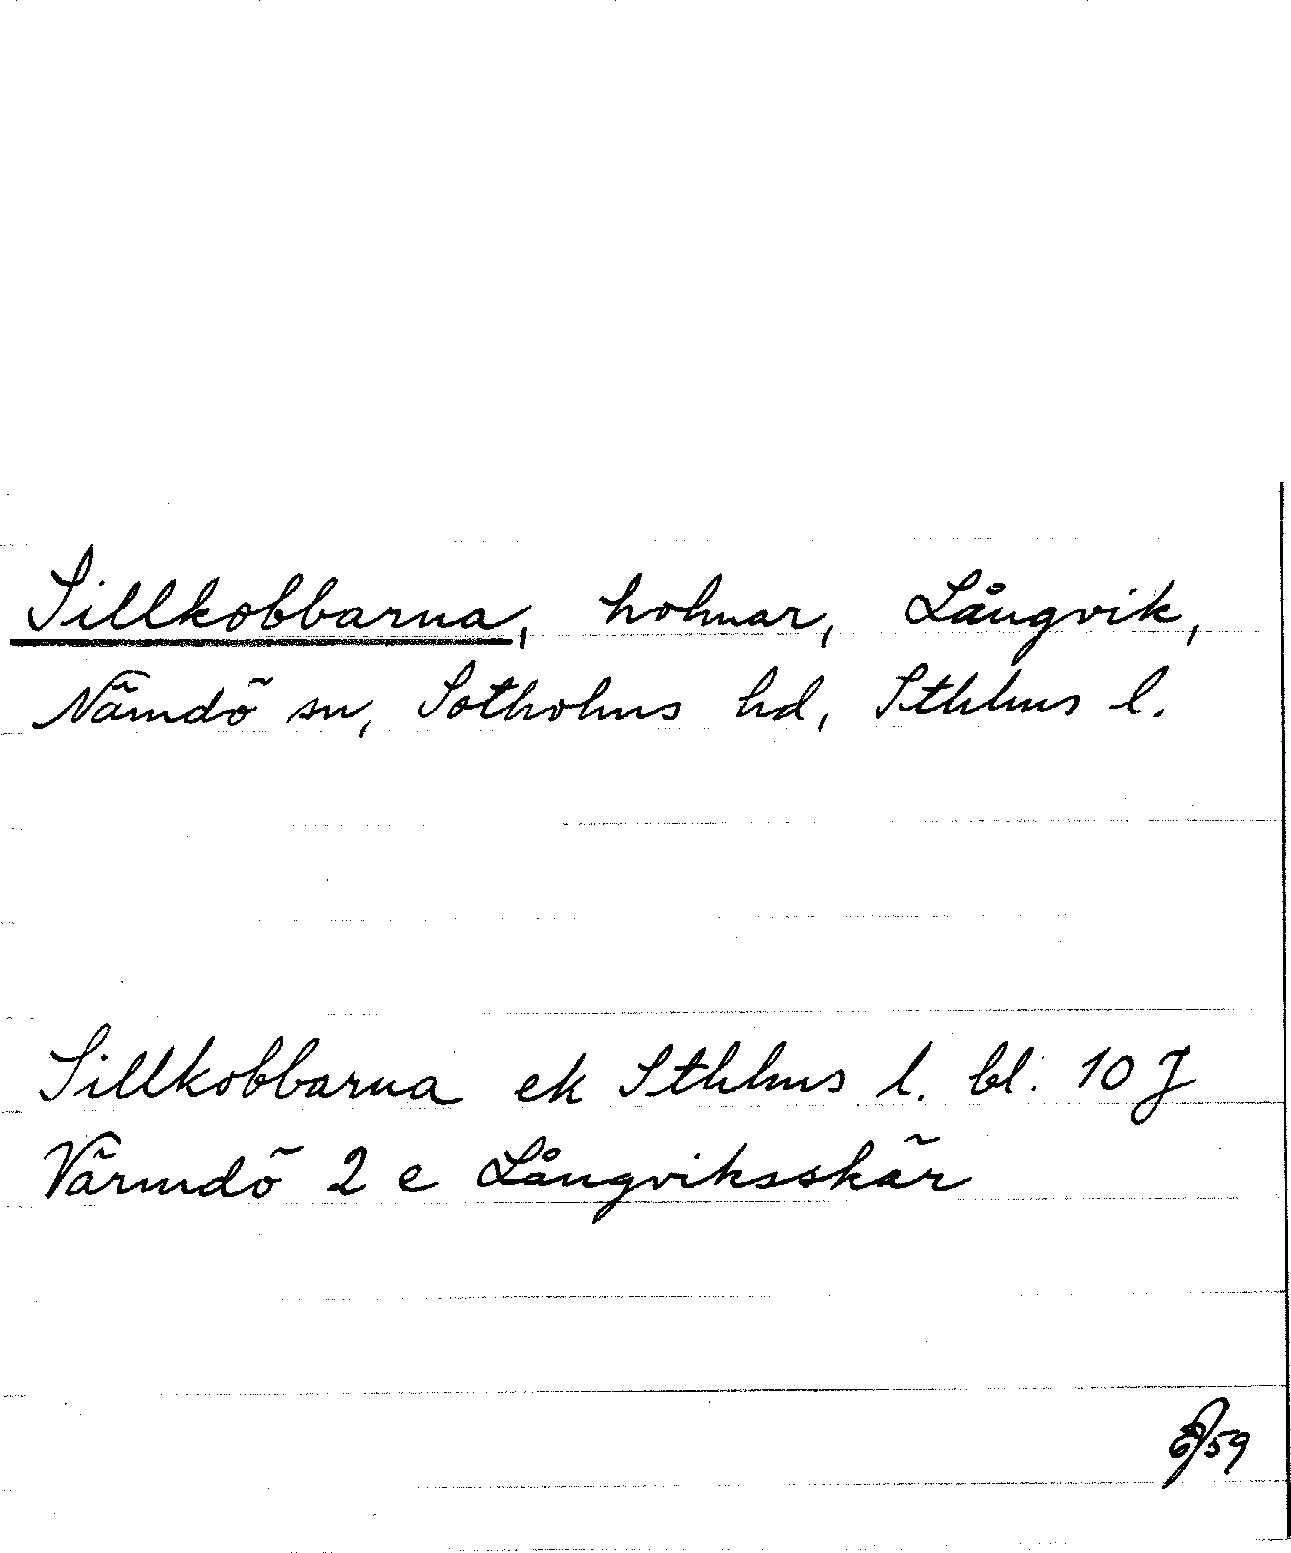 Sillkobbarna, holmar, Långvik,
Nämdö sn, Sotholms hd, Sthlms l.
Sillkobbarna ek Sthlms l. bl. 10 J
Värmdö 2 e Långviksskär
59